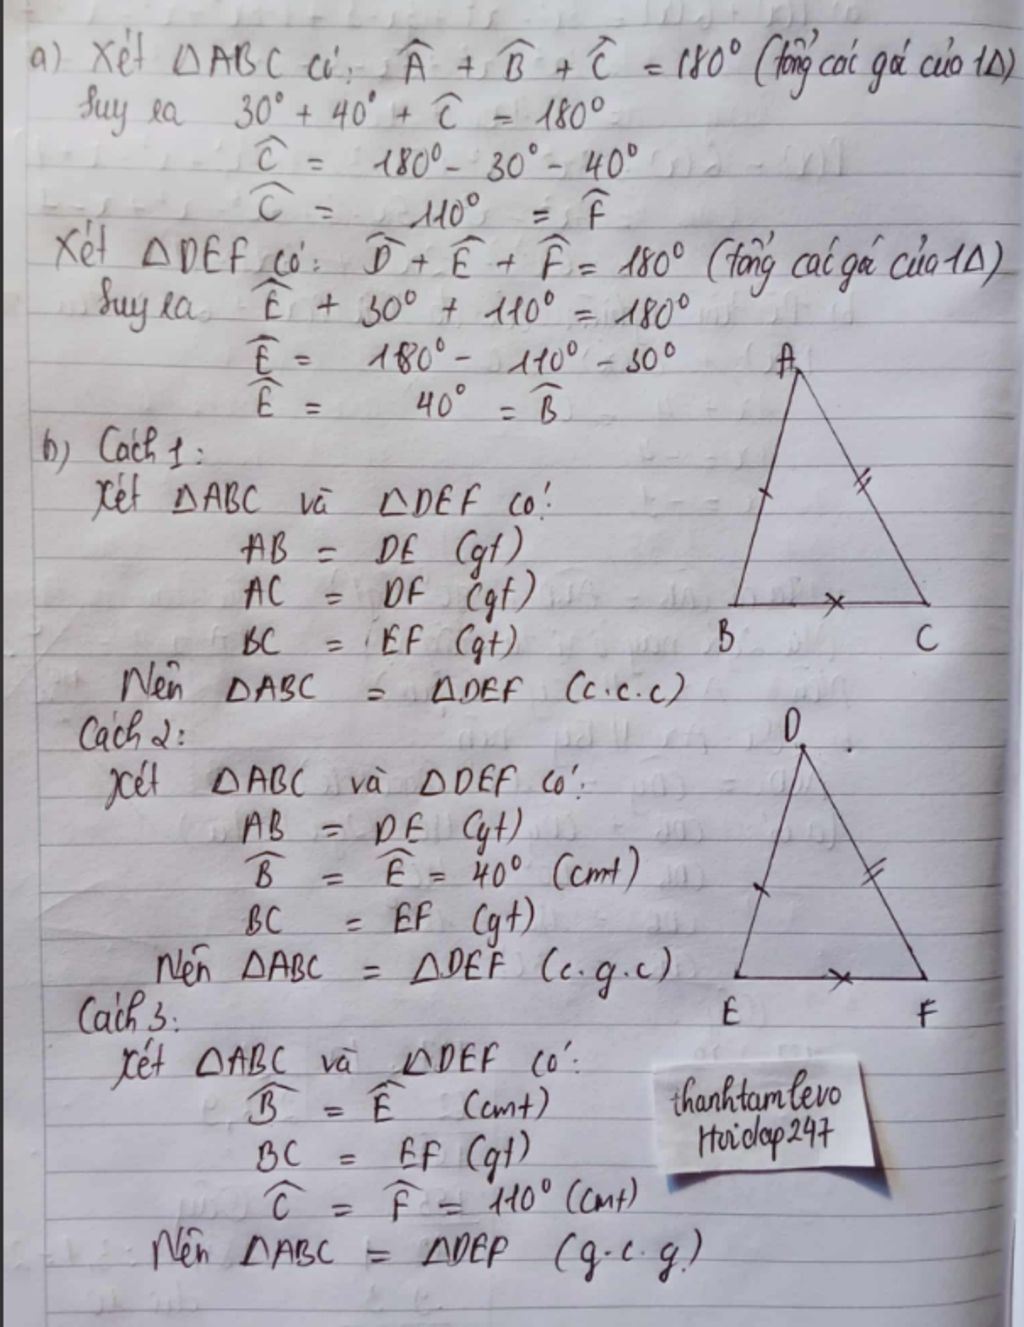 a) Xét ΔABC có: Â + B̂ + Ĉ = 180° (tổng các góc của 1Δ)
Suy ra 30° + 40° + Ĉ = 180°
Ĉ = 180° - 30° - 40°
Ĉ = 110° = F̂
Xét ΔDEF có: D̂ + Ê + F̂ = 180° (tổng các góc của 1Δ)
Suy ra Ê + 30° + 110° = 180°
Ê = 180° - 110° - 30°
Ê = 40° = B̂
b) Cách 1:
Xét ΔABC và ΔDEF có:
AB = DE (gt)
AC = DF (gt)
BC = EF (gt)
Nên ΔABC = ΔDEF (c.c.c)
A
B C
Cách 2:
Xét ΔABC và ΔDEF có:
AB = DE (gt)
B̂ = Ê = 40° (cmt)
BC = EF (gt)
Nên ΔABC = ΔDEF (c.g.c)
D
E F
Cách 3:
Xét ΔABC và ΔDEF có:
B̂ = Ê (cmt)
BC = EF (gt)
Ĉ = F̂ = 110° (cmt)
Nên ΔABC = ΔDEF (g.c.g)
thanhtamlevo
Hoidap247